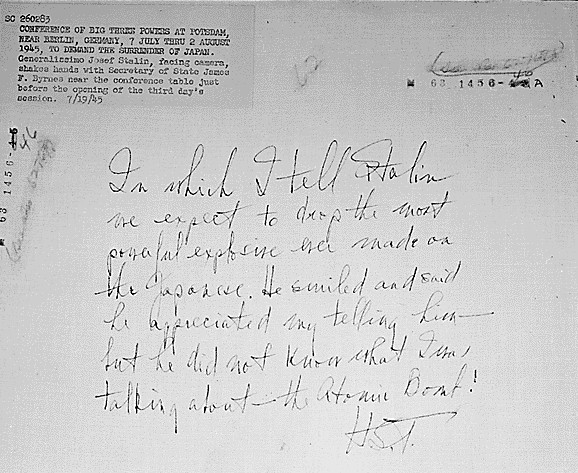 SC 260283
CONFERENCE OF BIG THREE POWERS AT POTSDAM,
NEAR BERLIN, GERMANY, 7 JULY THRU 2 AUGUST
1945, TO DEMAND THE SURRENDER OF JAPAN.
Generalissimo Josef Stalin, facing camera,
shakes hands with Secretary of State James
F. Byrnes near the conference table just
before the opening of the third day's
session. 7/19/45
62
63 1456-46A
63 1456-46
In which I tell Stalin
we expect to drop the most
powerful explosive ever made on
the Japanese. He smiled and said
he appreciated my telling him—
but he did not know what I was
talking about—the Atomic Bomb!
HST.